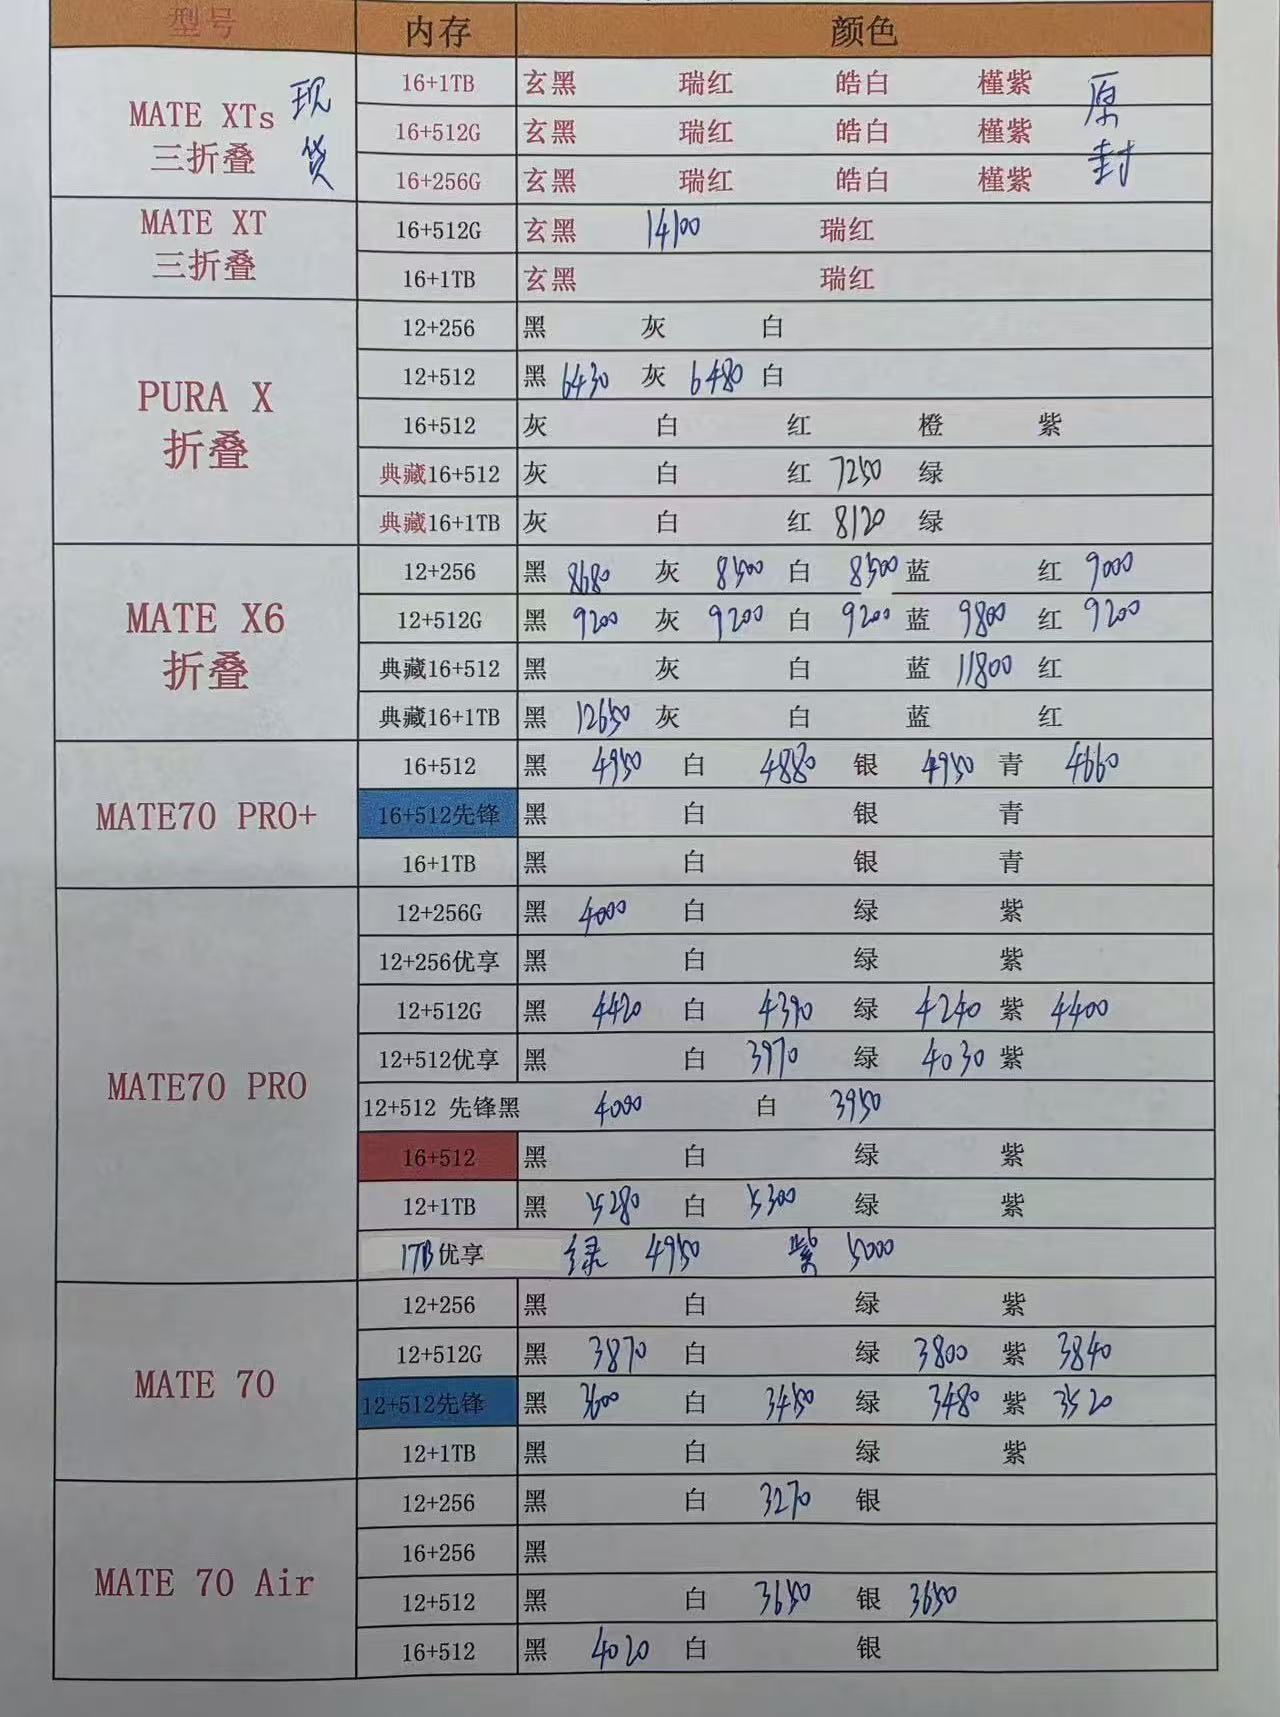 型号 内存 颜色
MATE XTs 三折叠 现货 原封
16+1TB 玄黑 瑞红 皓白 槿紫
16+512G 玄黑 瑞红 皓白 槿紫
16+256G 玄黑 瑞红 皓白 槿紫
MATE XT 三折叠
16+512G 玄黑 14100 瑞红
16+1TB 玄黑 瑞红
PURA X 折叠
12+256 黑 灰 白
12+512 黑 6430 灰 6480 白
16+512 灰 白 红 橙 紫
典藏16+512 灰 白 红 7250 绿
典藏16+1TB 灰 白 红 8120 绿
MATE X6 折叠
12+256 黑 8680 灰 8500 白 8500 蓝 红 9000
12+512G 黑 9200 灰 9200 白 9200 蓝 9800 红 9200
典藏16+512 黑 灰 白 蓝 11800 红
典藏16+1TB 黑 12650 灰 白 蓝 红
MATE70 PRO+
16+512 黑 4950 白 4880 银 4950 青 4660
16+512先锋 黑 白 银 青
16+1TB 黑 白 银 青
MATE70 PRO
12+256G 黑 4000 白 绿 紫
12+256优享 黑 白 绿 紫
12+512G 黑 4420 白 4390 绿 4240 紫 4400
12+512优享 黑 白 3970 绿 4030 紫
12+512 先锋黑 4000 白 3950
16+512 黑 白 绿 紫
12+1TB 黑 5280 白 5300 绿 紫
1TB优享 绿 4950 紫 5000
MATE 70
12+256 黑 白 绿 紫
12+512G 黑 3870 白 绿 3800 紫 3840
12+512先锋 黑 3600 白 3450 绿 3480 紫 3520
12+1TB 黑 白 绿 紫
MATE 70 Air
12+256 黑 白 3270 银
16+256 黑
12+512 黑 白 3650 银 3650
16+512 黑 4020 白 银